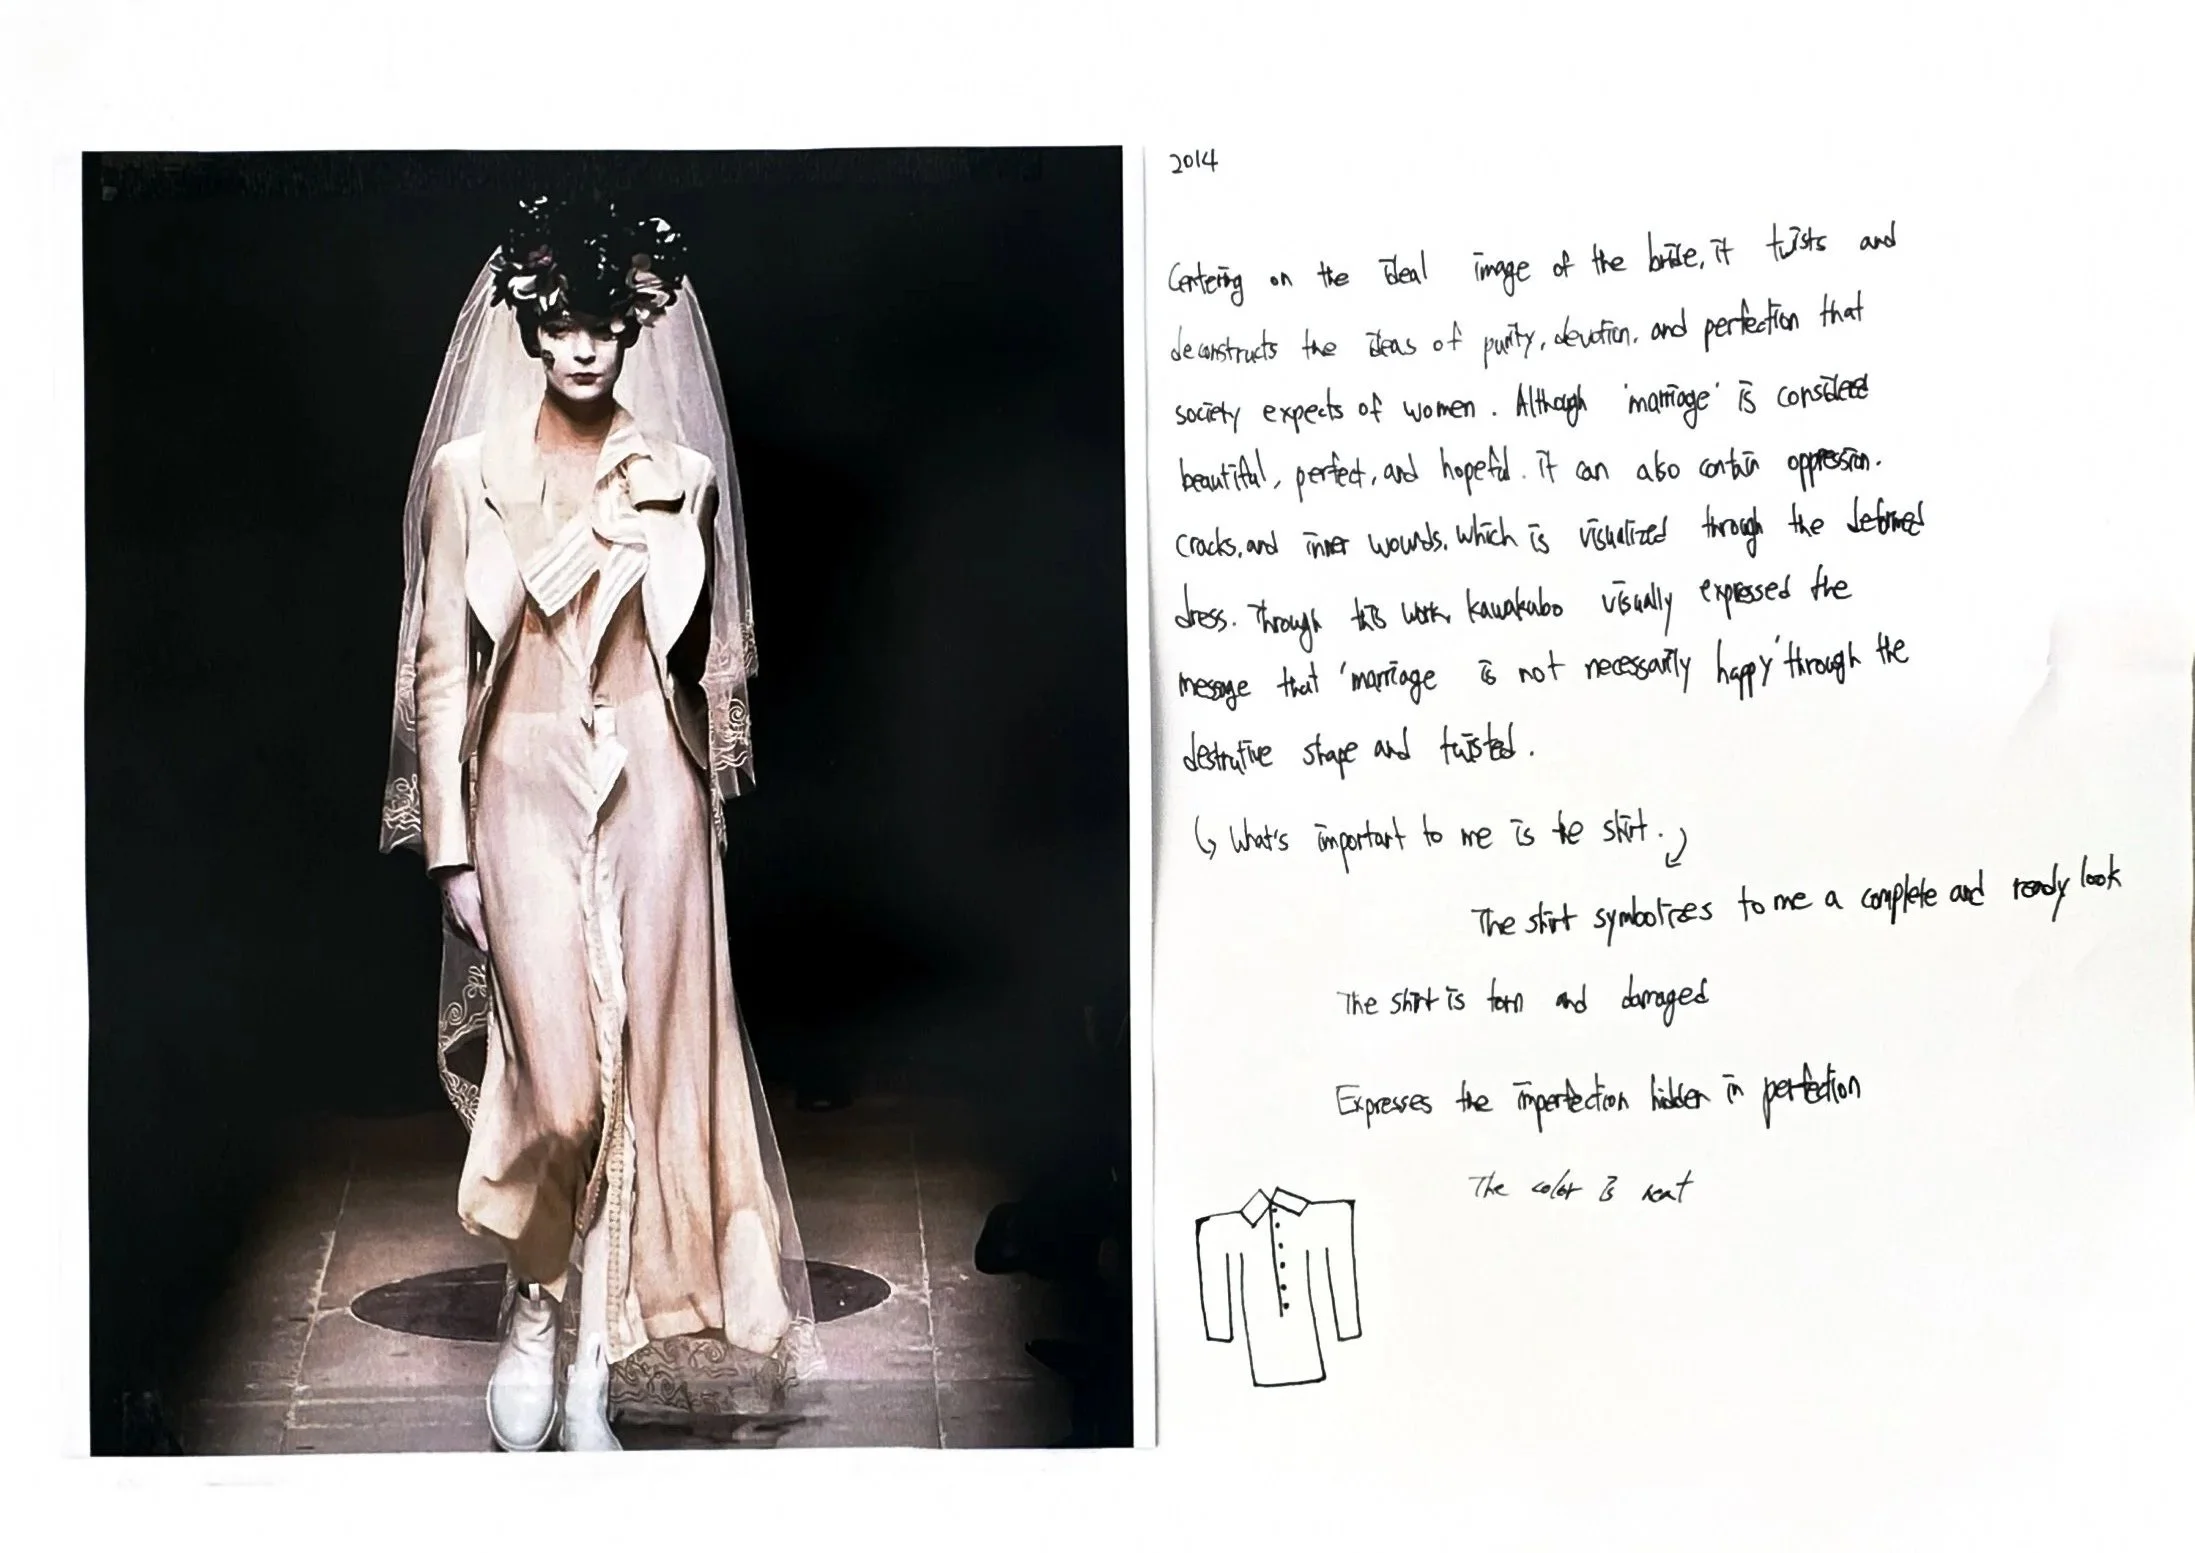 2014
Centering on the ideal image of the bride, it twists and
deconstructs the ideas of purity, devotion, and perfection that
society expects of women. Although 'marriage' is considered
beautiful, perfect, and hopeful. it can also contain oppression.
cracks, and inner wounds. which is visualized through the deformed
dress. Through this work, kawakubo visually expressed the
message that 'marriage is not necessarily happy' through the
destrutive shape and twisted.
What's important to me is the shirt.
The shirt symbolizes to me a complete and ready look
The shirt is torn and damaged
Expresses the imperfection hidden in perfection
The color is neat